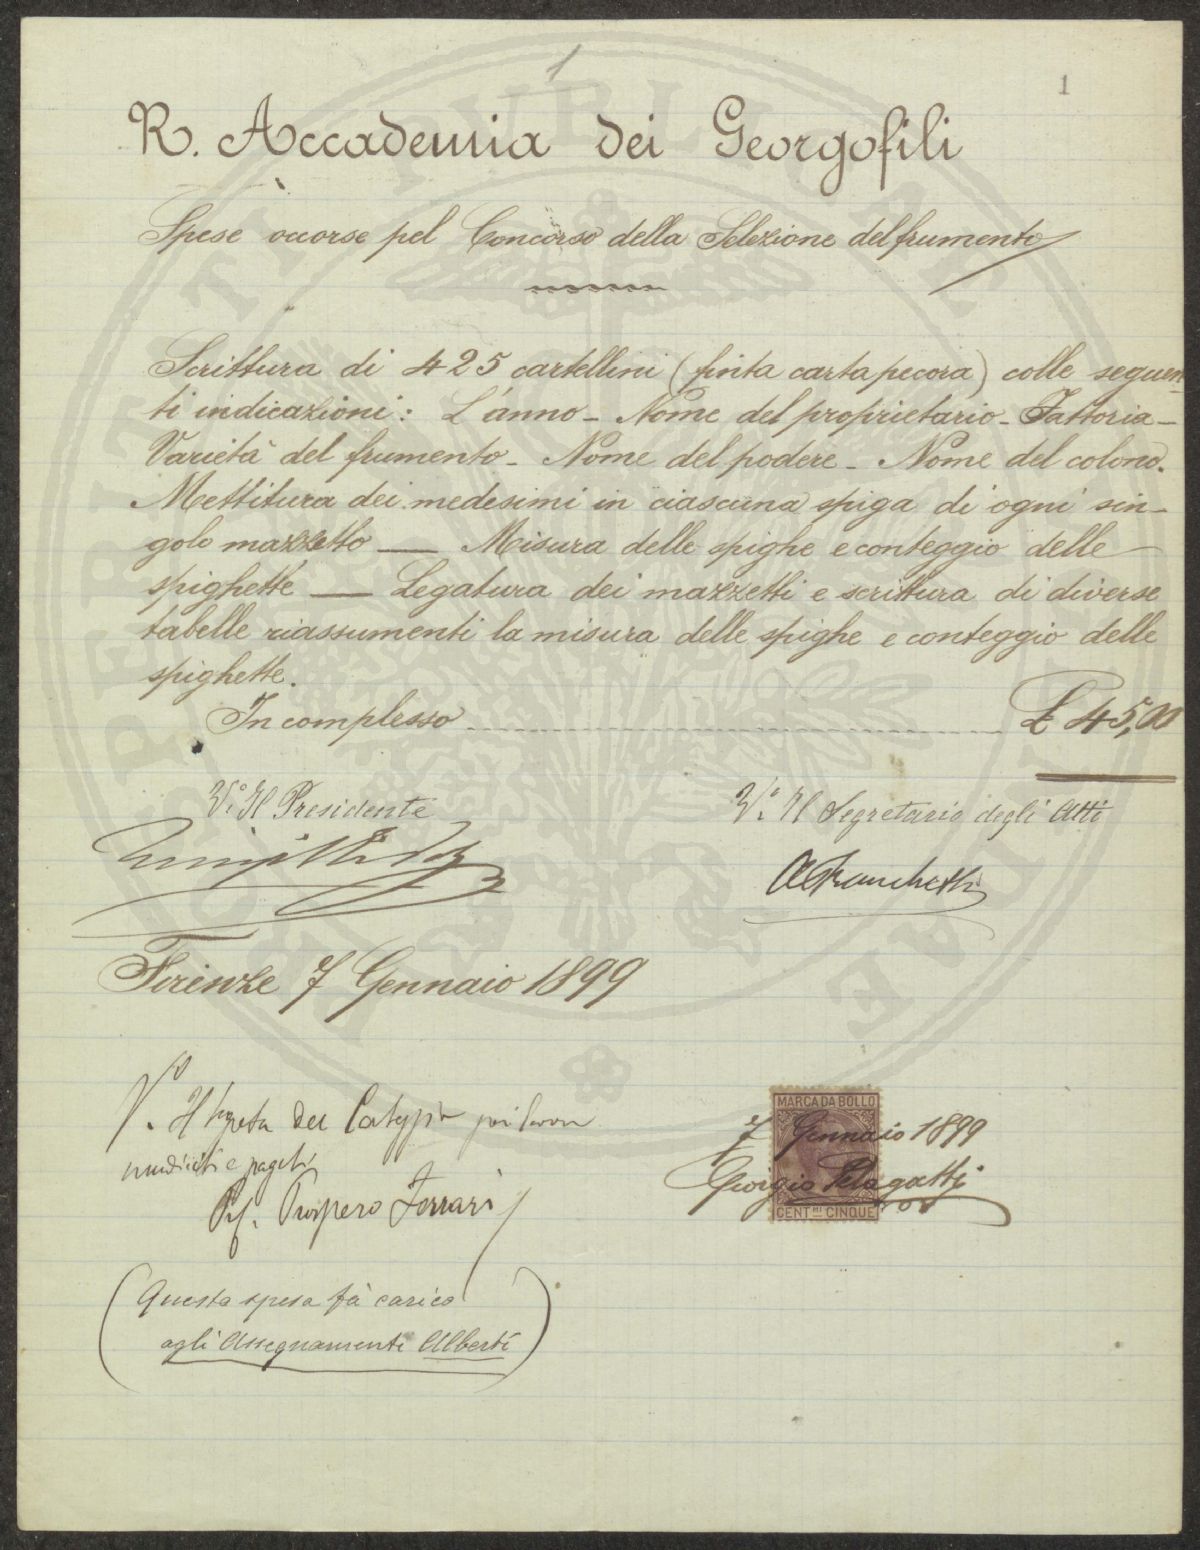 1
1
R. Accademia dei Georgofili
Spese occorse pel Concorso della Selezione del frumento
Scrittura di 425 cartellini (finta cartapecora) colle seguen-
ti indicazioni: L'anno - Nome del proprietario - Fattoria -
Varietà del frumento - Nome del podere - Nome del colono.
Mettitura dei medesimi in ciascuna spiga di ogni sin-
golo mazzetto — Misura delle spighe e conteggio delle
spighette — Legatura dei mazzetti e scrittura di diverse
tabelle riassumenti la misura delle spighe e conteggio delle
spighette.
In complesso £ 45,00
V.° Il Presidente
V.° Il Segretario degli Atti
A Franchetti
Firenze 7 Gennaio 1899
V.° Il
e pagati
Prf. Prospero Ferrari
MARCA DA BOLLO
7 Gennaio 1899
Giorgio Pelagatti
CENT.MI CINQUE
(Questa spesa fà carico
agli Assegnamenti Alberti)